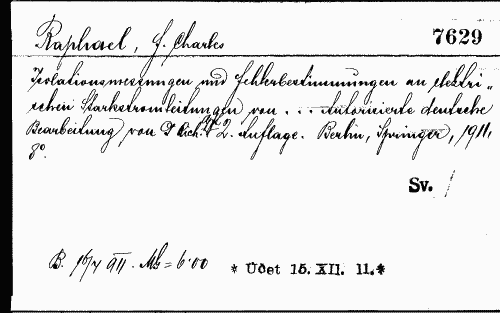 Raphael, F. Charles 7629
Isolationsmessungen und Fehlerbestimmungen an elektri-
schen Starkstromleitungen von ... Autorisierte deutsche
Bearbeitung von Dr. Rich. 2. Auflage. Berlin, Springer, 1911,
8°.
Sv.
B. 16/4 911. Mk = 6·00 * Odet 15. XII. 11.*